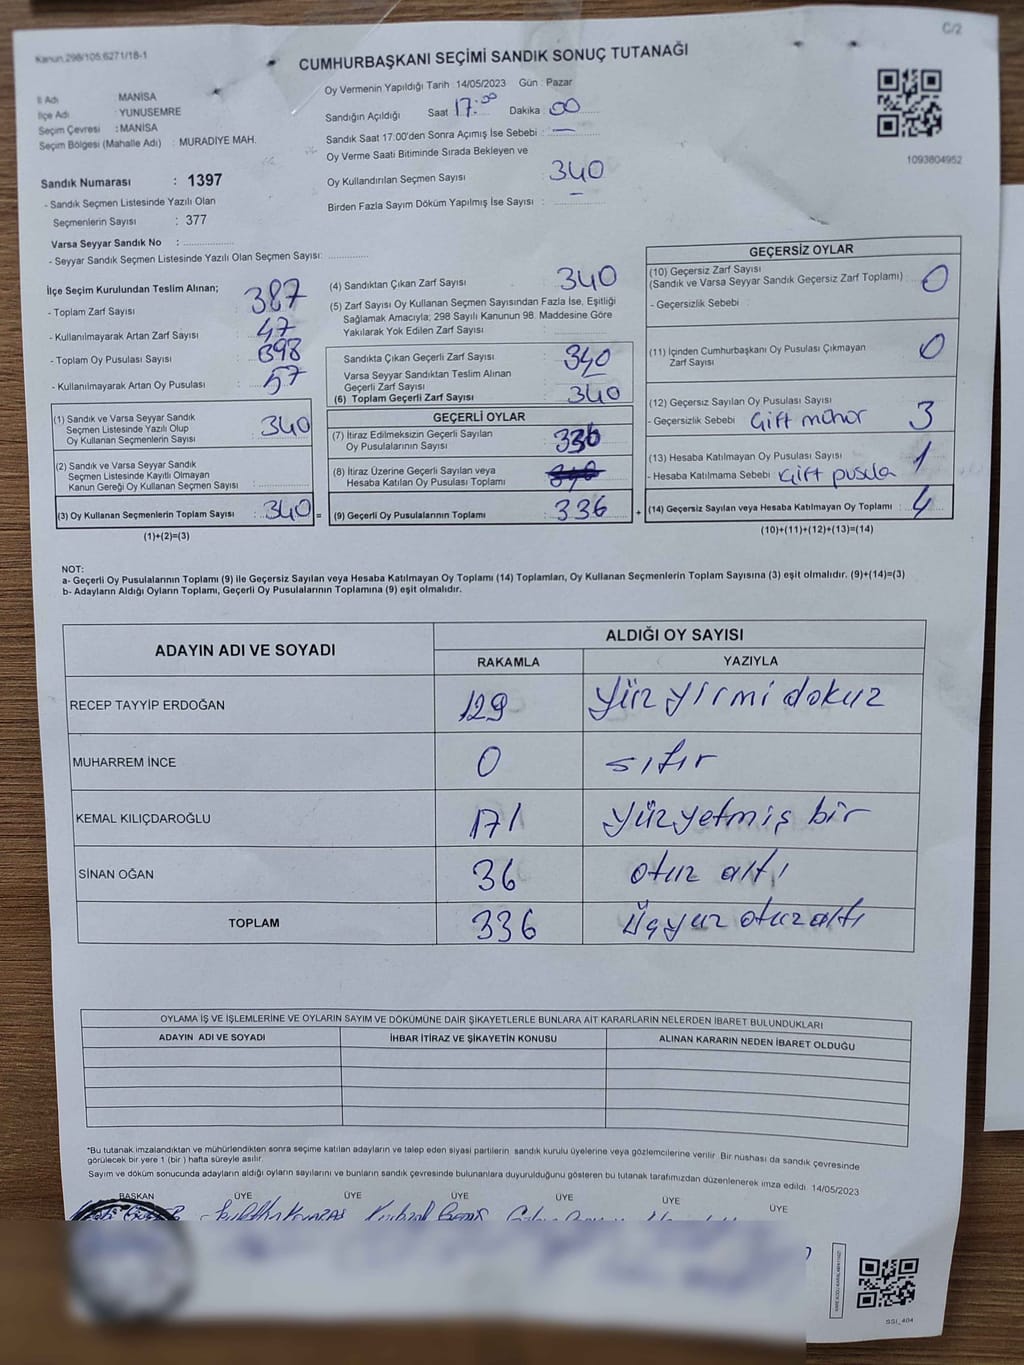 Kanun.298/105.6271/18-1
C/2
CUMHURBAŞKANI SEÇİMİ SANDIK SONUÇ TUTANAĞI
İl Adı MANİSA
İlçe Adı : YUNUSEMRE
Seçim Çevresi : MANİSA
Seçim Bölgesi (Mahalle Adı) : MURADİYE MAH.
Oy Vermenin Yapıldığı Tarih 14/05/2023 Gün : Pazar
Sandığın Açıldığı Saat 17:00 Dakika : 00
Sandık Saat 17.00'den Sonra Açımış İse Sebebi : —
Oy Verme Saati Bitiminde Sırada Bekleyen ve
Oy Kullandırılan Seçmen Sayısı : 340
Birden Fazla Sayım Döküm Yapılmış İse Sayısı : —
1093804952
Sandık Numarası : 1397
- Sandık Seçmen Listesinde Yazılı Olan
Seçmenlerin Sayısı : 377
Varsa Seyyar Sandık No :
- Seyyar Sandık Seçmen Listesinde Yazılı Olan Seçmen Sayısı:
İlçe Seçim Kurulundan Teslim Alınan;
- Toplam Zarf Sayısı : 387
- Kullanılmayarak Artan Zarf Sayısı : 47
- Toplam Oy Pusulası Sayısı : 398
- Kullanılmayarak Artan Oy Pusulası : 57
(1) Sandık ve Varsa Seyyar Sandık
Seçmen Listesinde Yazılı Olup
Oy Kullanan Seçmenlerin Sayısı : 340
(2) Sandık ve Varsa Seyyar Sandık
Seçmen Listesinde Kayıtlı Olmayan
Kanun Gereği Oy Kullanan Seçmen Sayısı :
(3) Oy Kullanan Seçmenlerin Toplam Sayısı : 340 =
(1)+(2)=(3)
(4) Sandıktan Çıkan Zarf Sayısı : 340
(5) Zarf Sayısı Oy Kullanan Seçmen Sayısından Fazla İse, Eşitliği
Sağlamak Amacıyla; 298 Sayılı Kanunun 98. Maddesine Göre
Yakılarak Yok Edilen Zarf Sayısı :
Sandıkta Çıkan Geçerli Zarf Sayısı : 340
Varsa Seyyar Sandıktan Teslim Alınan
Geçerli Zarf Sayısı : —
(6) Toplam Geçerli Zarf Sayısı : 340
GEÇERLİ OYLAR
(7) İtiraz Edilmeksizin Geçerli Sayılan
Oy Pusulalarının Sayısı : 336
(8) İtiraz Üzerine Geçerli Sayılan veya
Hesaba Katılan Oy Pusulası Toplamı :
(9) Geçerli Oy Pusulalarının Toplamı : 336 +
GEÇERSİZ OYLAR
(10) Geçersiz Zarf Sayısı
(Sandık ve Varsa Seyyar Sandık Geçersiz Zarf Toplamı) : 0
- Geçersizlik Sebebi :
(11) İçinden Cumhurbaşkanı Oy Pusulası Çıkmayan
Zarf Sayısı : 0
(12) Geçersiz Sayılan Oy Pusulası Sayısı : 3
- Geçersizlik Sebebi Çift mühür
(13) Hesaba Katılmayan Oy Pusulası Sayısı : 1
- Hesaba Katılmama Sebebi : Çift pusula
(14) Geçersiz Sayılan veya Hesaba Katılmayan Oy Toplamı : 4
(10)+(11)+(12)+(13)=(14)
NOT:
a- Geçerli Oy Pusulalarının Toplamı (9) ile Geçersiz Sayılan veya Hesaba Katılmayan Oy Toplamı (14) Toplamları, Oy Kullanan Seçmenlerin Toplam Sayısına (3) eşit olmalıdır. (9)+(14)=(3)
b- Adayların Aldığı Oyların Toplamı, Geçerli Oy Pusulalarının Toplamına (9) eşit olmalıdır.
ADAYIN ADI VE SOYADI
ALDIĞI OY SAYISI
RAKAMLA YAZIYLA
RECEP TAYYİP ERDOĞAN 129 yüz yirmi dokuz
MUHARREM İNCE 0 sıfır
KEMAL KILIÇDAROĞLU 171 yüzyetmiş bir
SİNAN OĞAN 36 otuz altı
TOPLAM 336 üçyüz otuzaltı
OYLAMA İŞ VE İŞLEMLERİNE VE OYLARIN SAYIM VE DÖKÜMÜNE DAİR ŞİKAYETLERLE BUNLARA AİT KARARLARIN NELERDEN İBARET BULUNDUKLARI
ADAYIN ADI VE SOYADI İHBAR İTİRAZ VE ŞİKAYETİN KONUSU ALINAN KARARIN NEDEN İBARET OLDUĞU
*Bu tutanak imzalandıktan ve mühürlendikten sonra seçime katılan adayların ve talep eden siyasi partilerin sandık kurulu üyelerine veya gözlemcilerine verilir. Bir nüshası da sandık çevresinde
görülecek bir yere 1 (bir) hafta süreyle asılır.
Sayım ve döküm sonucunda adayların aldığı oyların sayılarını ve bunların sandık çevresinde bulunanlara duyurulduğunu gösteren bu tutanak tarafımızdan düzenlenerek imza edildi 14/05/2023
BAŞKAN ÜYE ÜYE ÜYE ÜYE ÜYE ÜYE
SSI_404